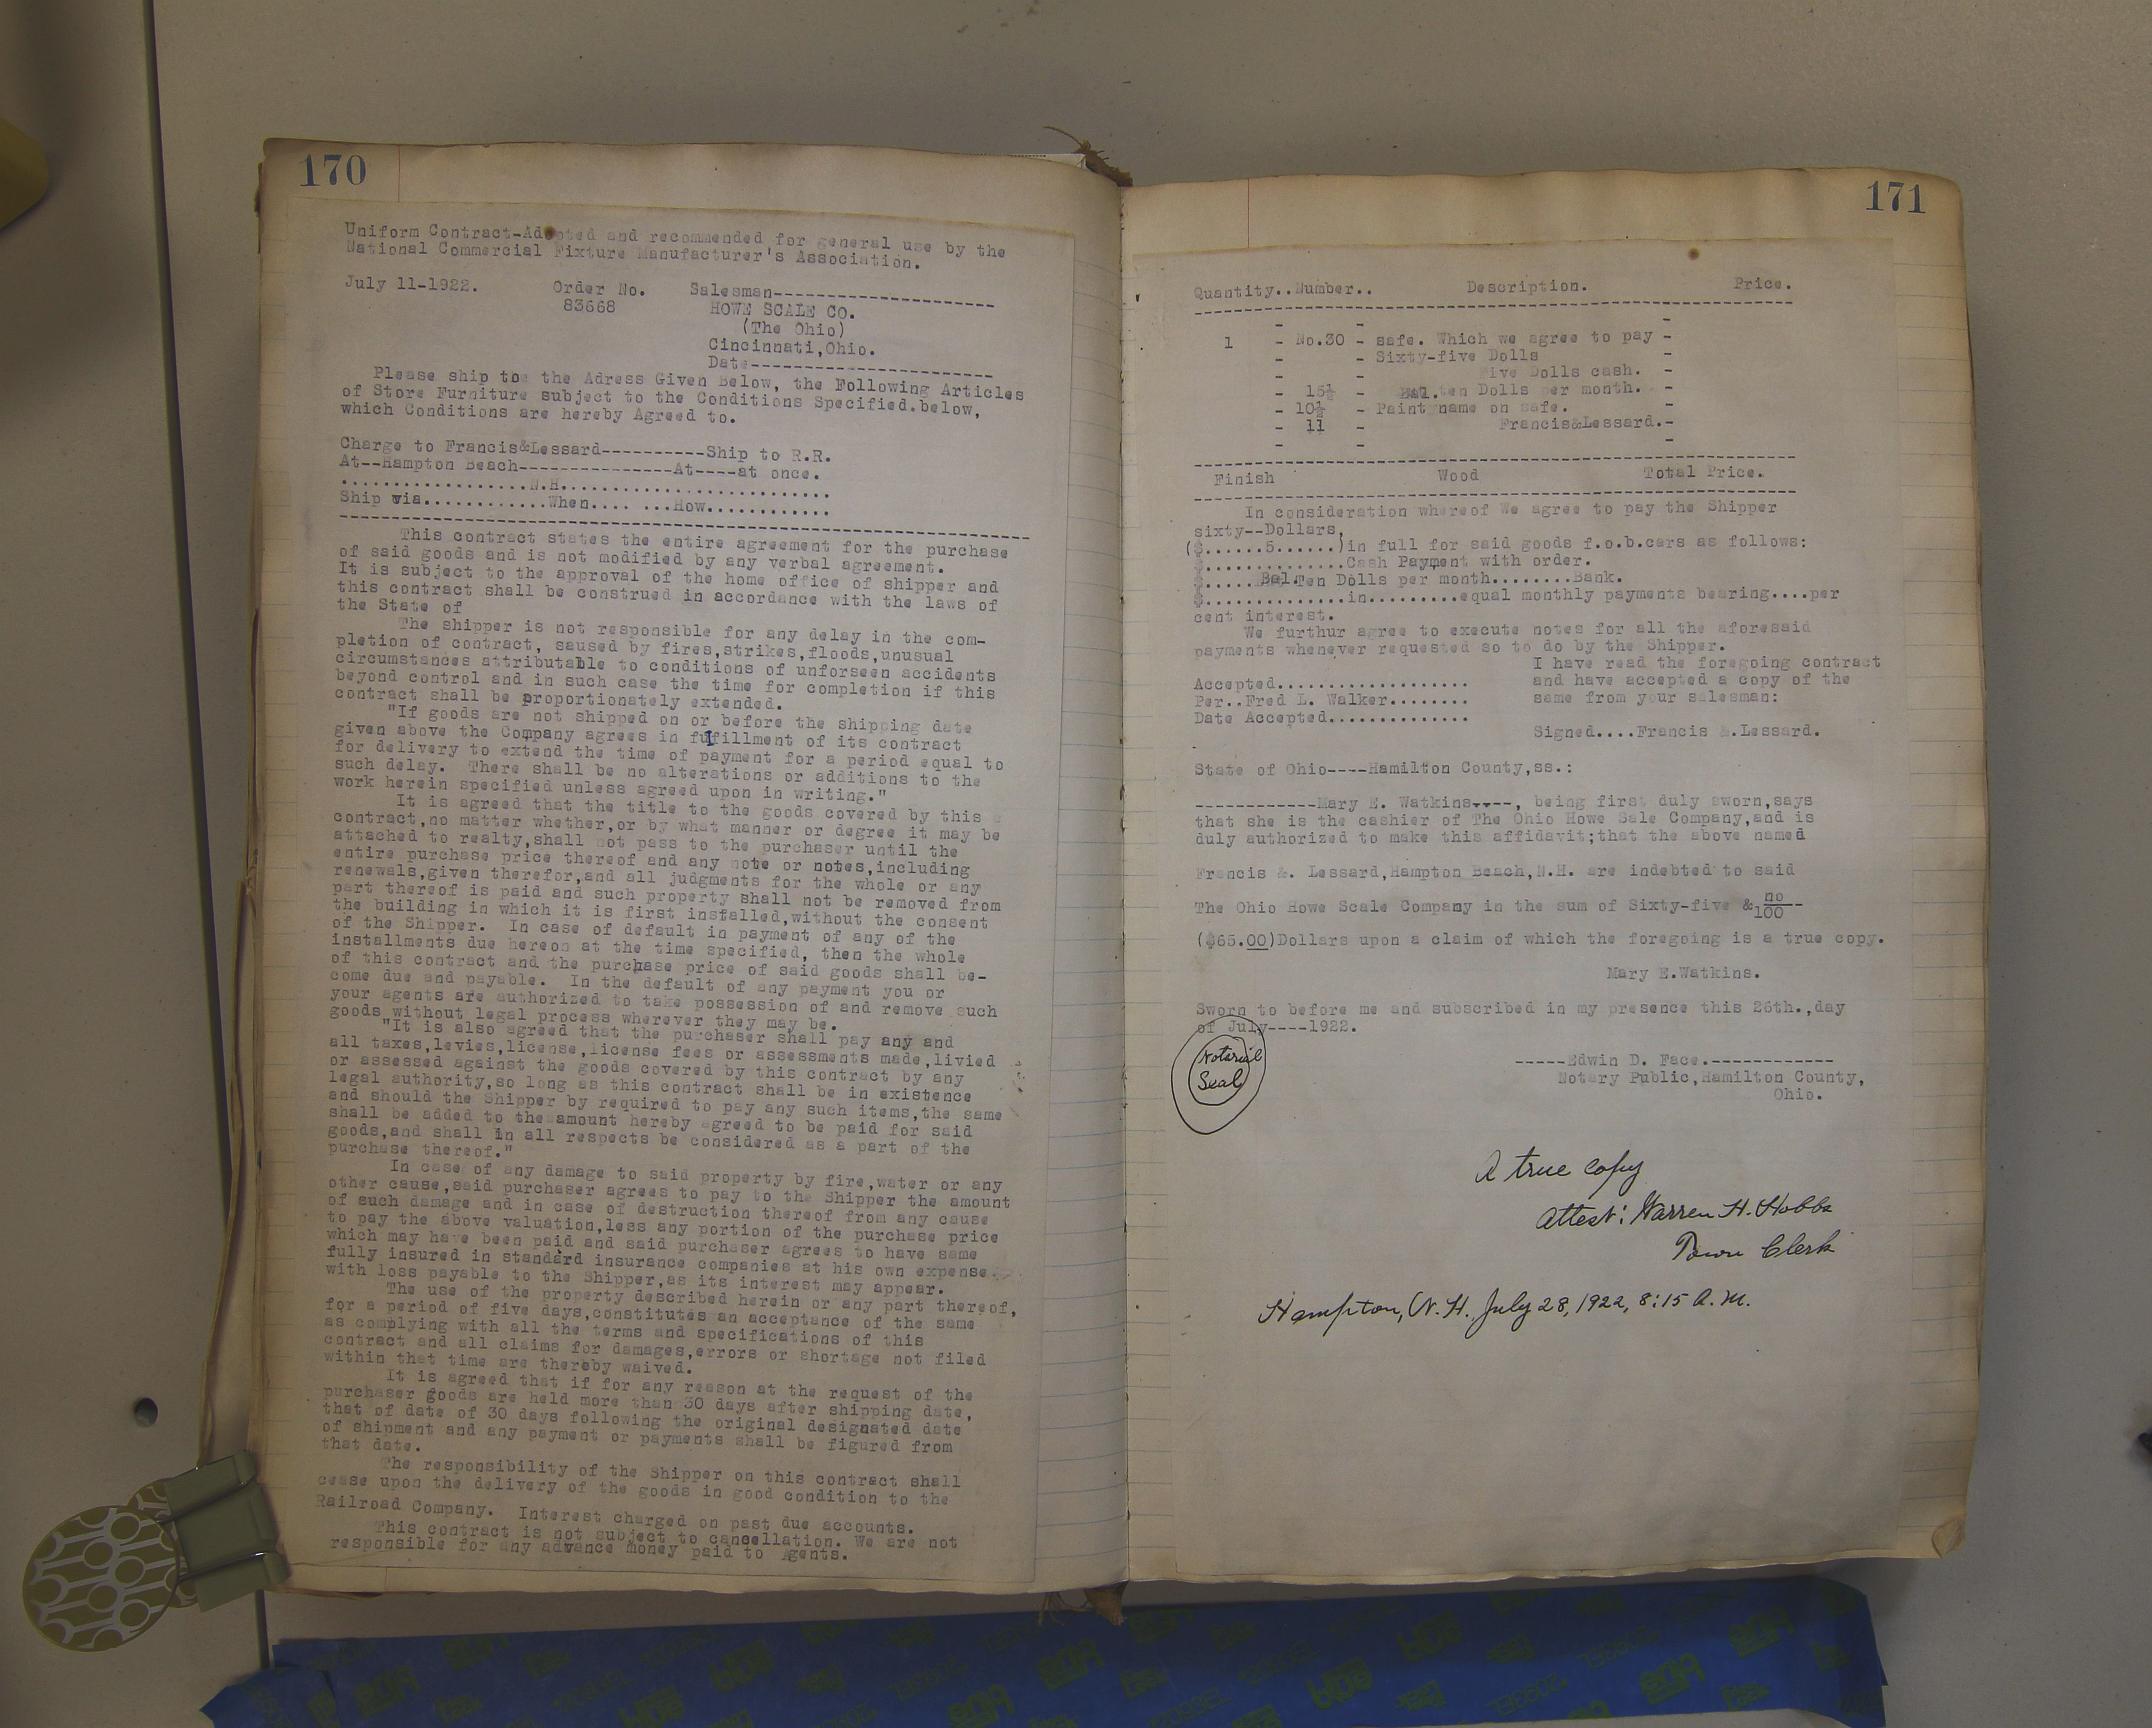 170
Uniform Contract-Adopted and recommended for general use by the
National Commercial Fixture Manufacturer's Association.
July 11-1922. Order No. Salesman----------------------
83668 HOWE SCALE CO.
(The Ohio)
Cincinnati,Ohio.
Date------------------------
Please ship to the Adress Given Below, the Following Articles
of Store Furniture subject to the Conditions Specified.below,
which Conditions are hereby Agreed to.
Charge to Francis&Lessard----------Ship to R.R.
At--Hampton Beach---------------At----at once.
...................N.H...........................
Ship via............When.... ...How............
This contract states the entire agreement for the purchase
of said goods and is not modified by any verbal agreement.
It is subject to the approval of the home office of shipper and
this contract shall be construed in accordance with the laws of
the State of
The shipper is not responsible for any delay in the com-
pletion of contract, saused by fires,strikes,floods,unusual
circumstances attributable to conditions of unforseen accidents
beyond control and in such case the time for completion if this
contract shall be proportionately extended.
"If goods are not shipped on or before the shipping date
given above the Company agrees in fulfillment of its contract
for delivery to extend the time of payment for a period equal to
such delay. There shall be no alterations or additions to the
work herein specified unless agreed upon in writing."
It is agreed that the title to the goods covered by this
contract,no matter whether,or by what manner or degree it may be
attached to realty,shall not pass to the purchaser until the
entire purchase price thereof and any note or notes,including
renewals,given therefor,and all judgments for the whole or any
part thereof is paid and such property shall not be removed from
the building in which it is first installed,without the consent
of the Shipper. In case of default in payment of any of the
installments due hereon at the time specified, then the whole
of this contract and the purchase price of said goods shall be-
come due and payable. In the default of any payment you or
your agents are authorized to take possession of and remove such
goods without legal process wherever they may be.
"It is also agreed that the purchaser shall pay any and
all taxes,levies,license,license fees or assessments made,livied
or assessed against the goods covered by this contract by any
legal authority,so long as this contract shall be in existence
and should the Shipper by required to pay any such items,the same
shall be added to the amount hereby agreed to be paid for said
goods,and shall in all respects be considered as a part of the
purchase thereof."
In case of any damage to said property by fire,water or any
other cause,said purchaser agrees to pay to the Shipper the amount
of such damage and in case of destruction thereof from any cause
to pay the above valuation,less any portion of the purchase price
which may have been paid and said purchaser agrees to have same
fully insured in standard insurance companies at his own expense
with loss payable to the Shipper,as its interest may appear.
The use of the property described herein or any part thereof,
for a period of five days,constitutes an acceptance of the same
as complying with all the terms and specifications of this
contract and all claims for damages,errors or shortage not filed
within that time are thereby waived.
It is agreed that if for any reason at the request of the
purchaser goods are held more than 30 days after shipping date,
that of date of 30 days following the original designated date
of shipment and any payment or payments shall be figured from
that date.
The responsibility of the Shipper on this contract shall
cease upon the delivery of the goods in good condition to the
Railroad Company. Interest charged on past due accounts.
This contract is not subject to cancellation. We are not
responsible for any advance money paid to Agents.
171
Quantity..Number.. Description. Price.
1 - No.30 - safe. Which we agree to pay -
- - Sixty-five Dolls -
- - Five Dolls cash. -
- 15½ - Bal.ten Dolls per month. -
- 10½ - Paint name on safe. -
- 11 Francis&Lessard.-
Finish Wood Total Price.
In consideration whereof We agree to pay the Shipper
sixty--Dollars,
($......5......)in full for said goods f.o.b.cars as follows:
$..............Cash Payment with order.
$......Bal.Ten Dolls per month........Bank.
$..............in..........equal monthly payments bearing....per
cent interest.
We furthur agree to execute notes for all the aforesaid
payments whenever requested so to do by the Shipper.
I have read the foregoing contract
Accepted................... and have accepted a copy of the
Per..Fred L. Walker........ same from your salesman:
Date Accepted..............
Signed....Francis &.Lessard.
State of Ohio----Hamilton County,ss.:
------------Mary E. Watkins----, being first duly sworn,says
that she is the cashier of The Ohio Howe Sale Company,and is
duly authorized to make this affidavit;that the above named
Francis &. Lessard,Hampton Beach,N.H. are indebted to said
The Ohio Howe Scale Company in the sum of Sixty-five & no/100--
($65.00)Dollars upon a claim of which the foregoing is a true copy.
Mary E.Watkins.
Sworn to before me and subscribed in my presence this 26th.,day
of July----1922.
Notarial
Seal
-----Edwin D. Face.------------
Notary Public,Hamilton County,
Ohio.
A true copy
Attest: Warren H. Hobbs
Town Clerk
Hampton, N.H. July 28, 1922, 8:15 A.M.